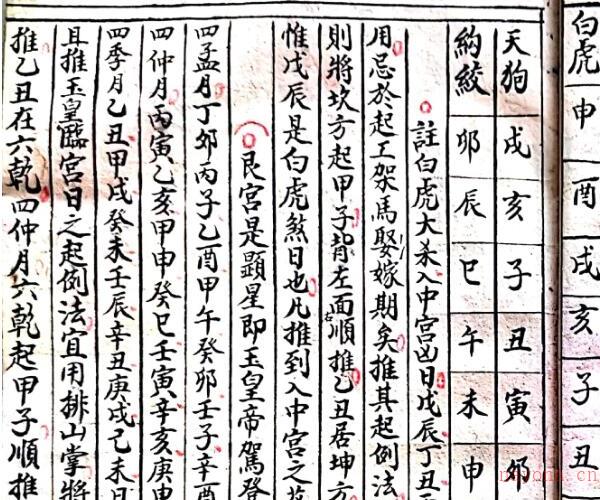 白虎申酉戌亥子丑
天狗戌亥子丑寅卯
的絞卯辰巳午未申
註白虎大杀入中宮凶日戊辰丁丑
用忌於起工架馬娶嫁期矣推其起例法
則將坎方起甲子背左面順推乙丑居坤方
右
惟戊辰是白虎煞日也凡推到入中宮之
艮宮是顯星即玉皇帝駕登
四孟月丁卯丙子乙酉甲午癸卯壬子辛酉
四仲月丙寅乙亥甲申癸巳壬寅辛亥庚申
四季月乙丑甲戌癸未壬辰辛丑庚戌己未日
且推玉皇臨宮日之起例法宜用排山掌將
推乙丑在六乾四仲月六乾起甲子順推